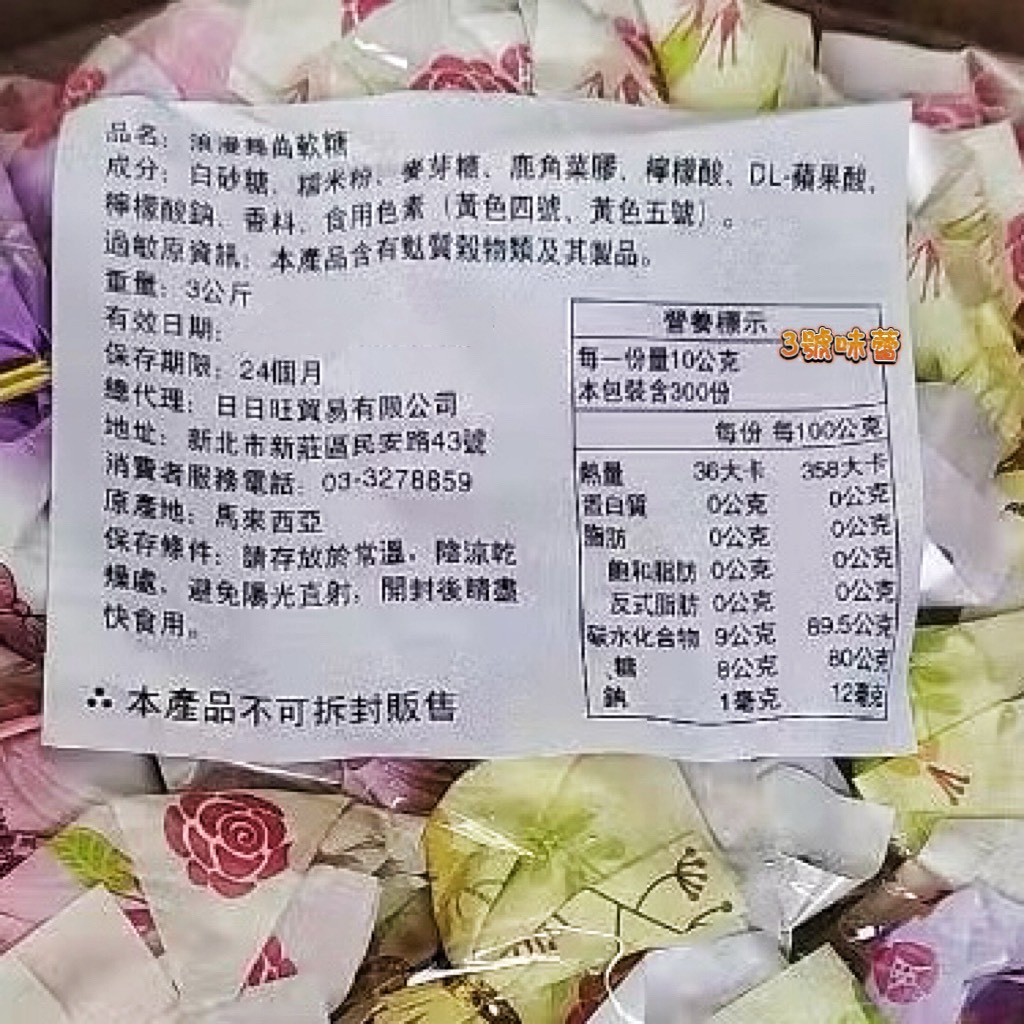 品名：浪漫舞曲軟糖
成分：白砂糖、糯米粉、麥芽糖、鹿角菜膠、檸檬酸、DL-蘋果酸、
檸檬酸鈉、香料、食用色素（黃色四號、黃色五號）。
過敏原資訊：本產品含有麩質穀物類及其製品。
重量：3公斤
有效日期：
保存期限：24個月
總代理：日日旺貿易有限公司
地址：新北市新莊區民安路43號
消費者服務電話：03-3278859
原產地：馬來西亞
保存條件：請存放於常溫，陰涼乾
燥處，避免陽光直射，開封後請盡
快食用。
∴ 本產品不可拆封販售
營養標示
3號味蕾
每一份量10公克
本包裝含300份
每份 每100公克
熱量 36大卡 358大卡
蛋白質 0公克 0公克
脂肪 0公克 0公克
飽和脂肪 0公克 0公克
反式脂肪 0公克 0公克
碳水化合物 9公克 89.5公克
糖 8公克 80公克
鈉 1毫克 12毫克